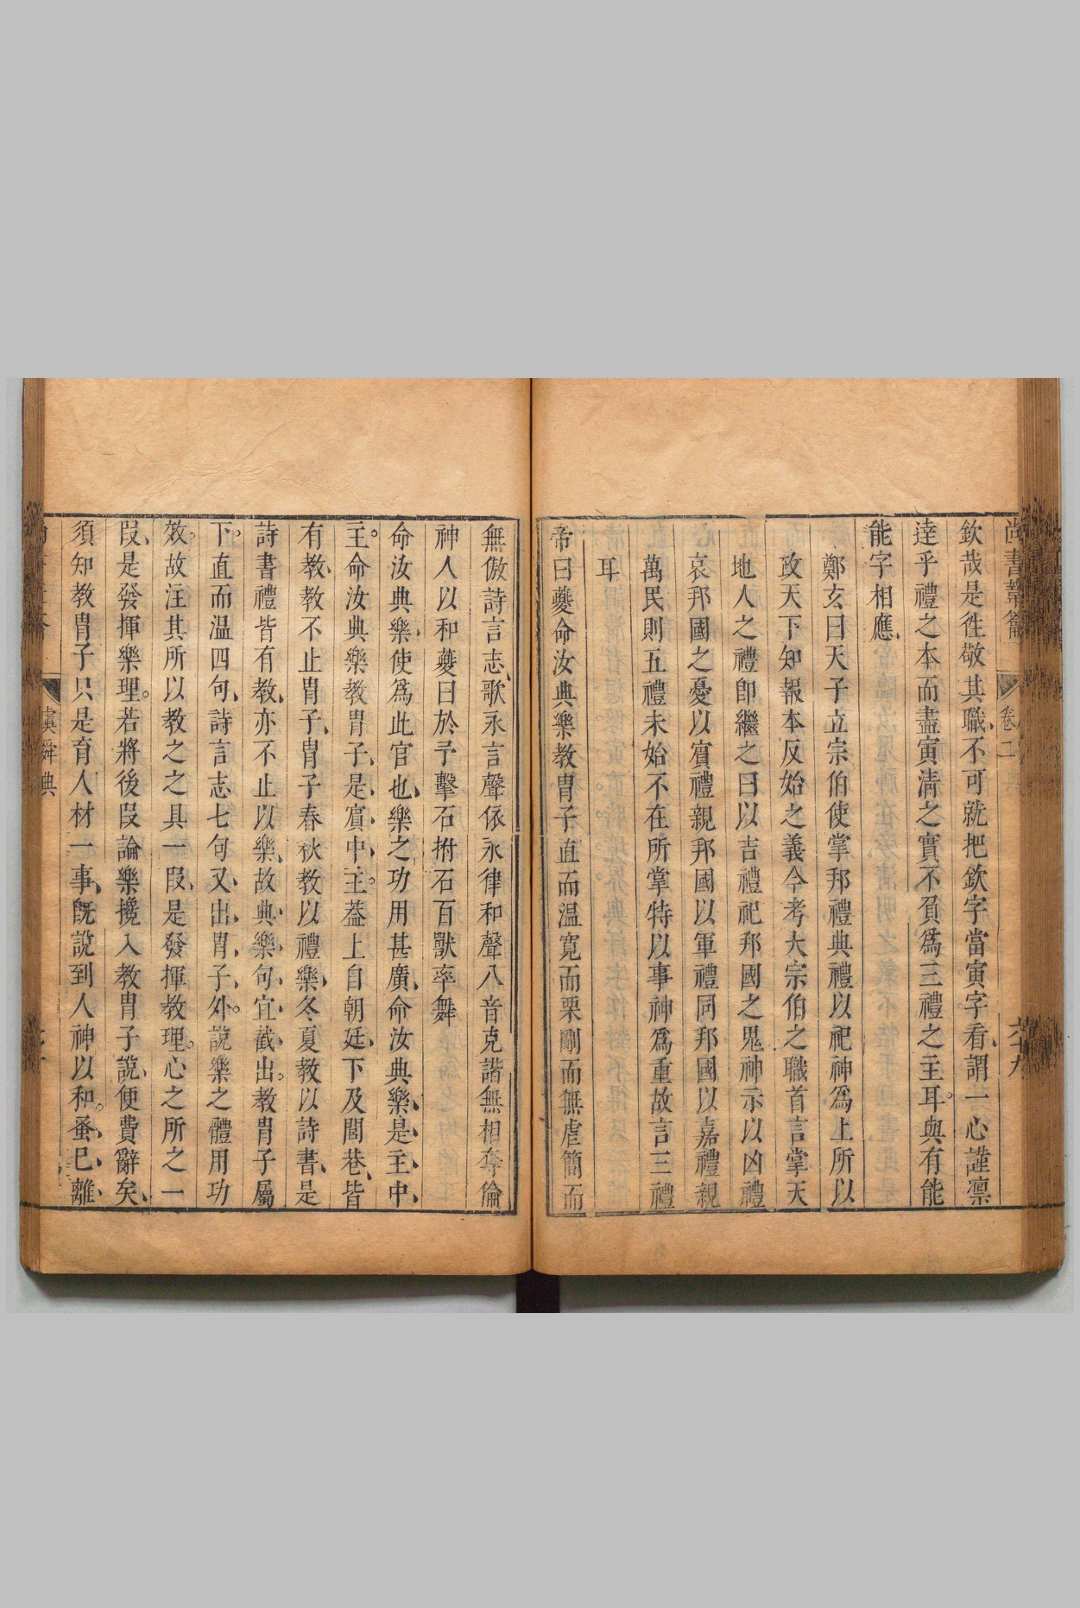 尚書
卷二
欽哉是往敬其職不可就把欽字當寅字看謂一心謹凛
達乎禮之本而盡寅清之實不負為三禮之主耳與有能
能字相應
鄭玄曰天子立宗伯使掌邦禮典禮以祀神為上所以
政天下知報本反始之義今考大宗伯之職首言掌天
地人之禮即繼之曰以吉禮祀邦國之鬼神示以凶禮
哀邦國之憂以賓禮親邦國以軍禮同邦國以嘉禮親
萬民則五禮未始不在所掌特以事神為重故言三禮
耳
帝曰夔命汝典樂教胄子直而温寛而栗剛而無虐簡而
無傲詩言志歌永言聲依永律和聲八音克諧無相奪倫
神人以和夔曰於予擊石拊石百獸率舞
命汝典樂使為此官也樂之功用甚廣命汝典樂是主中
主命汝典樂教胄子是賓中主葢上自朝廷下及閭巷皆
有教教不止胄子胄子春秋教以禮樂冬夏教以詩書是
詩書禮皆有教亦不止以樂故典樂句宜截出教胄子屬
下直而温四句詩言志七句又出胄子外說樂之體用功
效故注其所以教之之具一叚是發揮教理心之所之一
叚是發揮樂理若將後叚論樂攙入教胄子說便費辭矣
須知教胄子只是育人材一事旣說到人神以和蚤已離
虞舜典